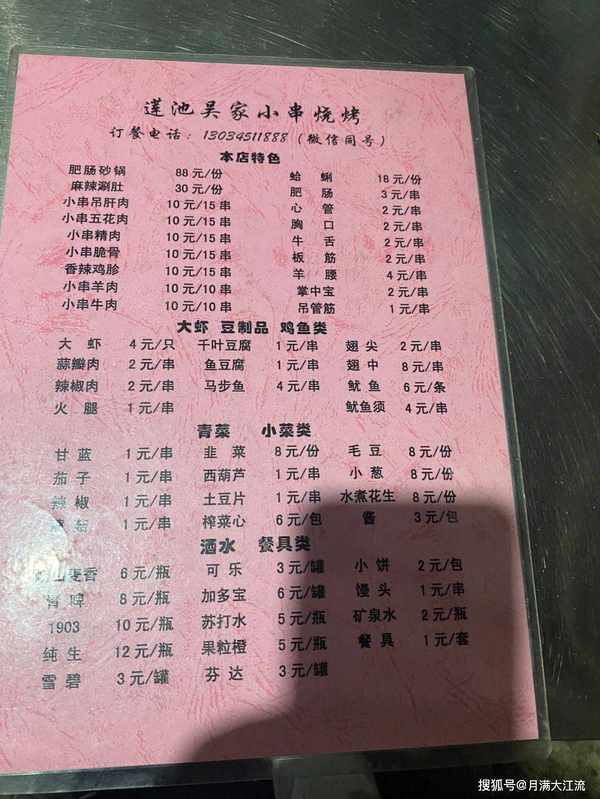 莲池吴家小串烧烤
订餐电话：13034511888（微信同号）
本店特色
肥肠砂锅 88元/份 蛤蜊 18元/份
麻辣涮肚 30元/份 肥肠 3元/串
小串吊肝肉 10元/15串 心管 2元/串
小串五花肉 10元/15串 胸口 2元/串
小串精肉 10元/15串 牛舌 2元/串
小串脆骨 10元/15串 板筋 2元/串
香辣鸡胗 10元/15串 羊腰 4元/串
小串羊肉 10元/10串 掌中宝 2元/串
小串牛肉 10元/10串 吊管筋 1元/串
大虾 豆制品 鸡鱼类
大虾 4元/只 千叶豆腐 1元/串 翅尖 2元/串
蒜瓣肉 2元/串 鱼豆腐 1元/串 翅中 8元/串
辣椒肉 2元/串 马步鱼 4元/串 鱿鱼 6元/条
火腿 1元/串 鱿鱼须 4元/串
青菜 小菜类
甘蓝 1元/串 韭菜 8元/份 毛豆 8元/份
茄子 1元/串 西葫芦 1元/串 小葱 8元/份
辣椒 1元/串 土豆片 1元/串 水煮花生 8元/份
菇 1元/串 榨菜心 6元/包 酱 3元/包
酒水 餐具类
山麦香 6元/瓶 可乐 3元/罐 小饼 2元/包
青啤 8元/瓶 加多宝 6元/罐 馒头 1元/串
1903 10元/瓶 苏打水 5元/瓶 矿泉水 2元/瓶
纯生 12元/瓶 果粒橙 5元/瓶 餐具 1元/套
雪碧 3元/罐 芬达 3元/罐
搜狐号@月满大江流